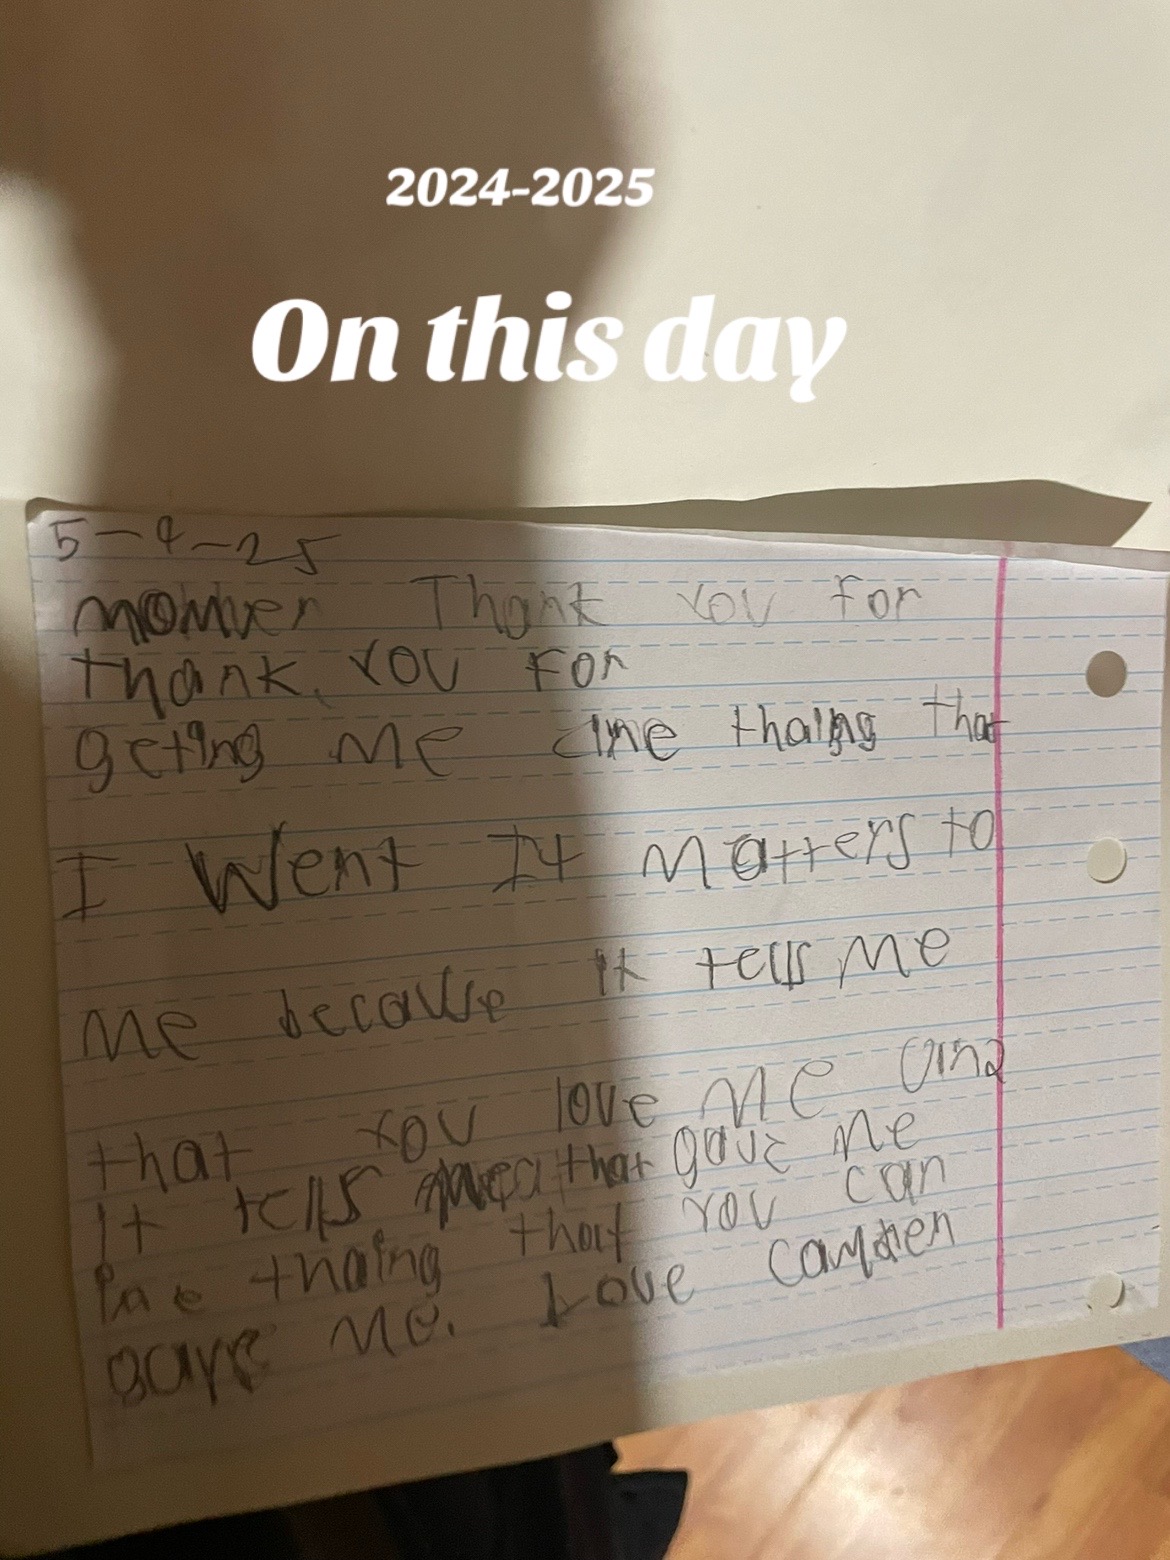 2024-2025
On this day
5-9-25
Thank you for
thank you for
geting me thaing that
I Went It Matters to
Me because It tells Me
that you love ME and
It tells that gave me
thaing that you can
Me. Love Camden